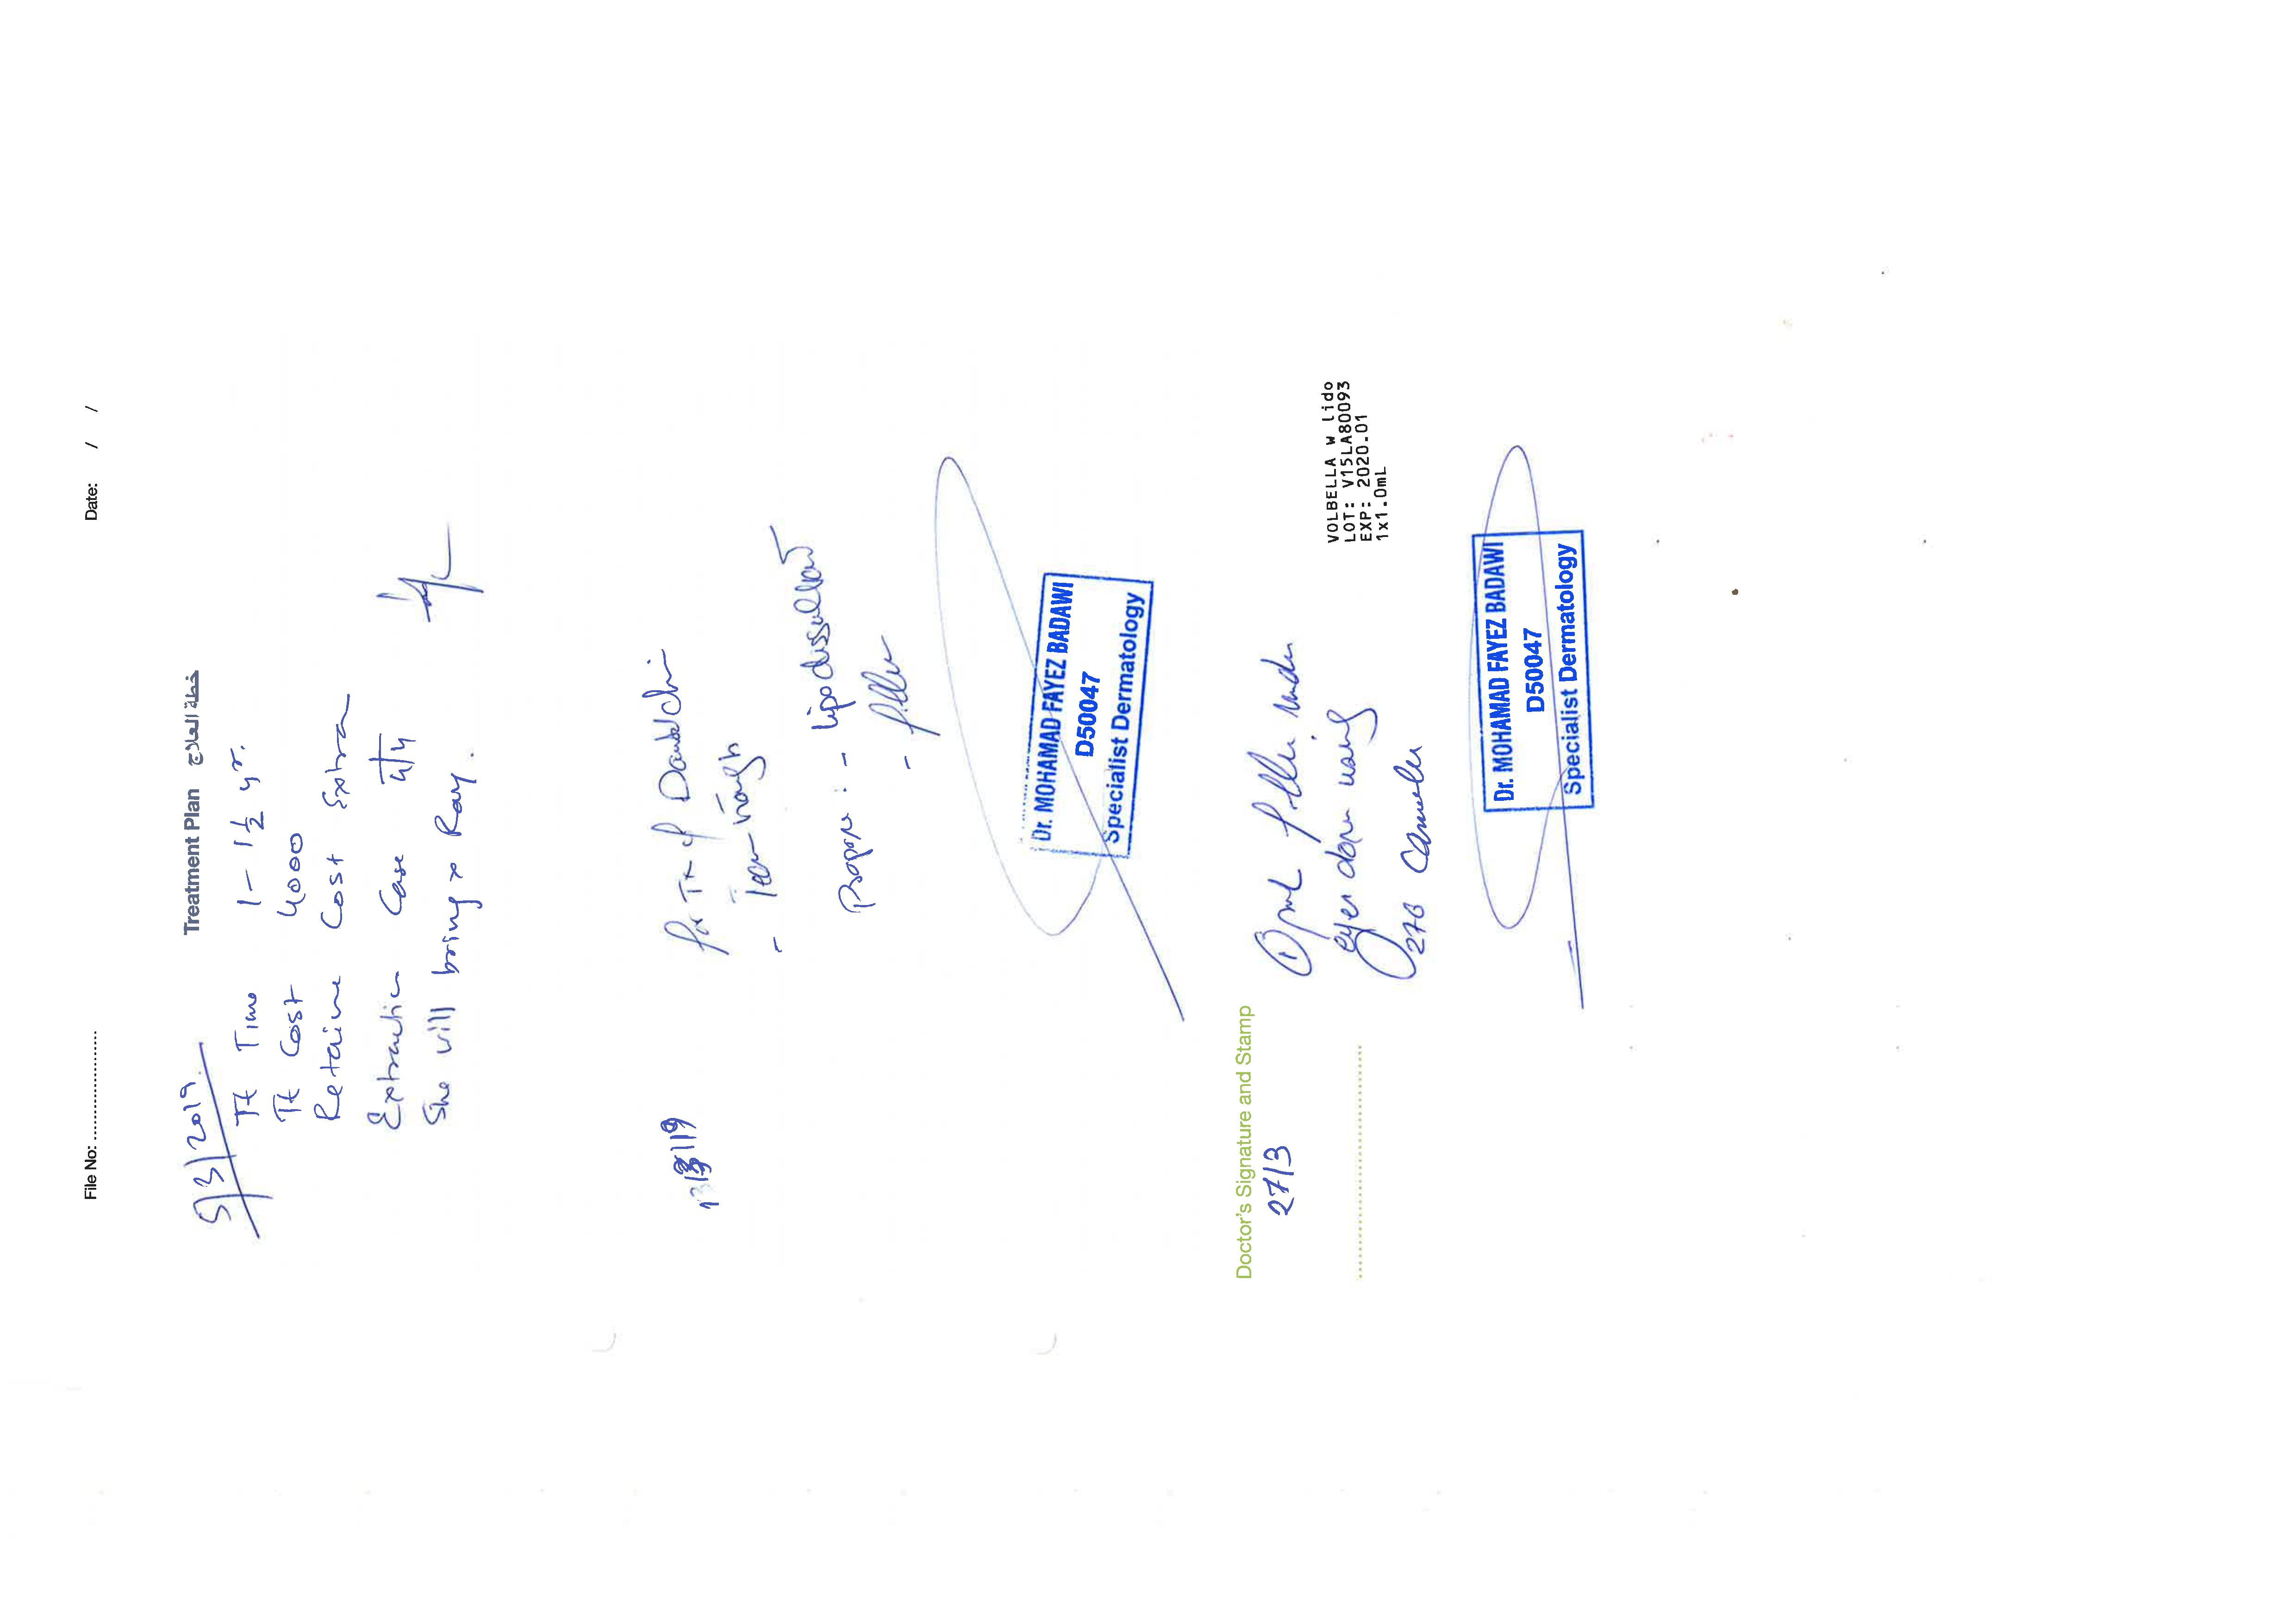 File No: ............................
Date: / /
Treatment Plan خطة العلاج
5/3/2019
Tt Time 1 - 1 1/2 yr.
Tt Cost 4000
Retainer Cost Extra
Extraction Case 4/4
She will bring x Ray.
for Tx of
- Tear-trough
Propose : - Lipodissolve
- filler
Dr. MOHAMAD FAYEZ BADAWI
D50047
Specialist Dermatology
Doctor's Signature and Stamp
27/3
① filler under
eyes done using
27G Cannula
VOLBELLA w lido
LOT: V15LA80093
EXP: 2020.01
1x1.0mL
Dr. MOHAMAD FAYEZ BADAWI
D50047
Specialist Dermatology